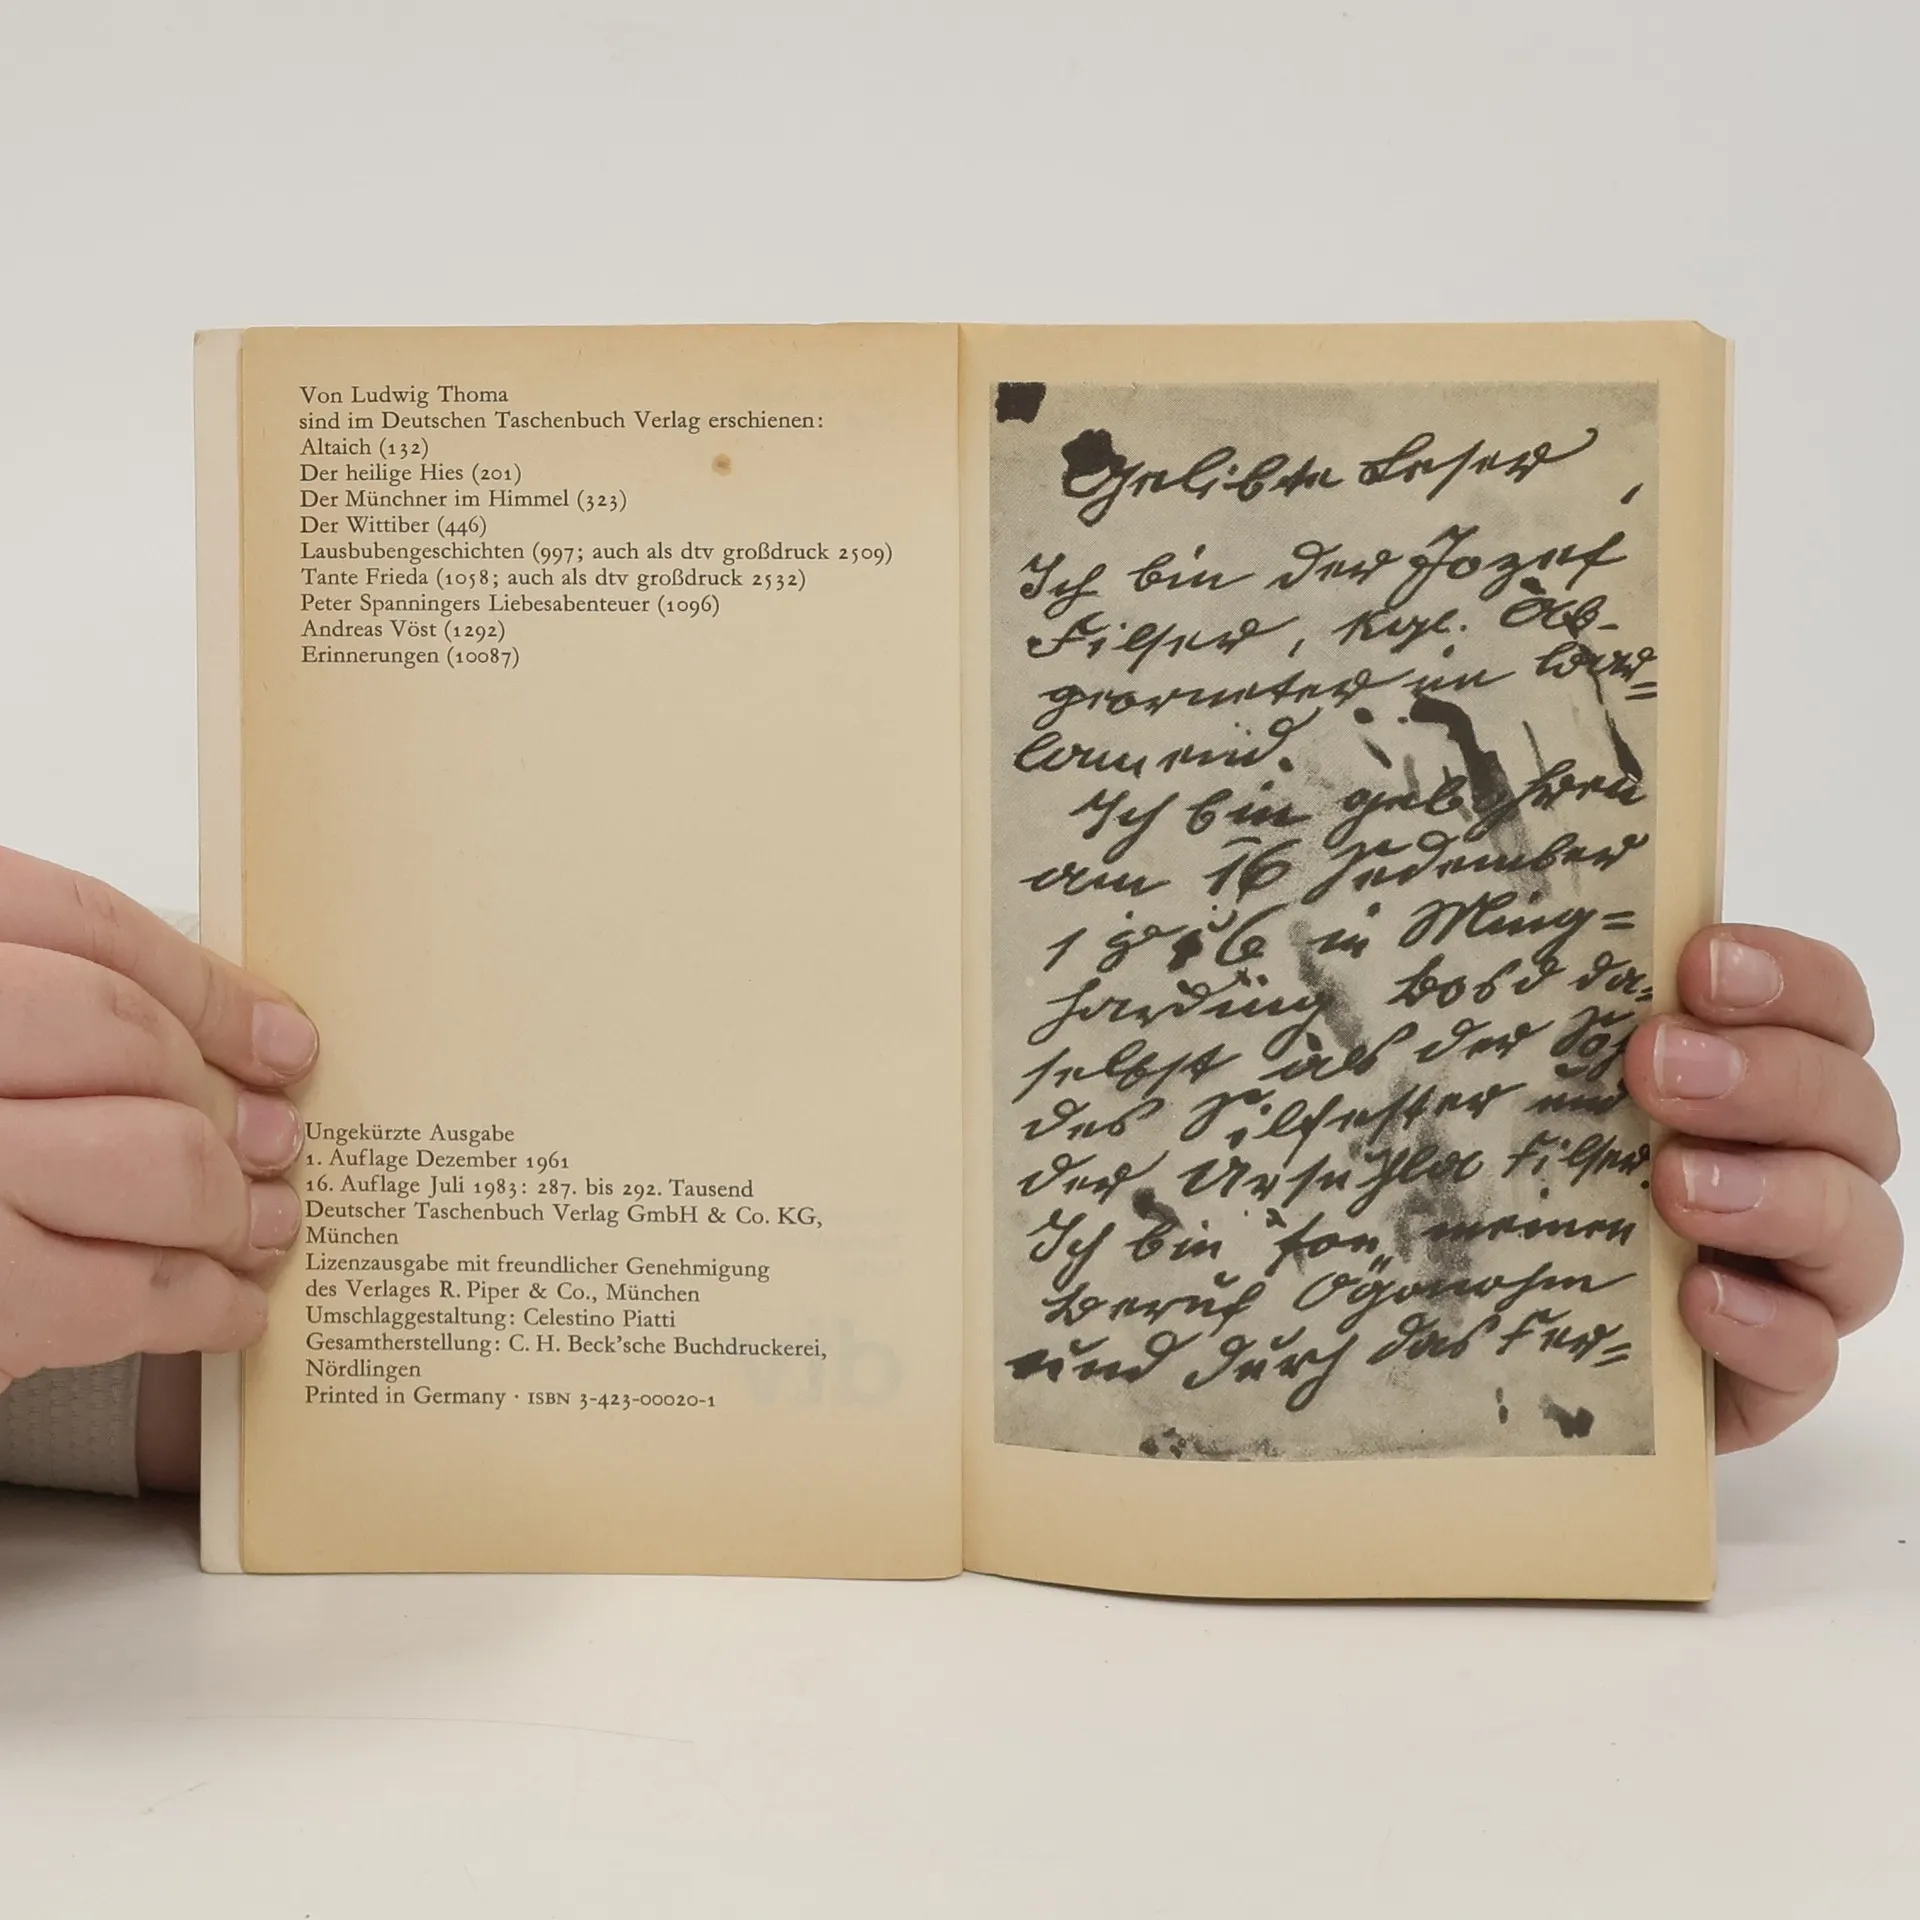 Von Ludwig Thoma
sind im Deutschen Taschenbuch Verlag erschienen:
Altaich (132)
Der heilige Hies (201)
Der Münchner im Himmel (323)
Der Wittiber (446)
Lausbubengeschichten (997; auch als dtv großdruck 2509)
Tante Frieda (1058; auch als dtv großdruck 2532)
Peter Spanningers Liebesabenteuer (1096)
Andreas Vöst (1292)
Erinnerungen (10087)
Ungekürzte Ausgabe
1. Auflage Dezember 1961
16. Auflage Juli 1983: 287. bis 292. Tausend
Deutscher Taschenbuch Verlag GmbH & Co. KG,
München
Lizenzausgabe mit freundlicher Genehmigung
des Verlages R. Piper & Co., München
Umschlaggestaltung: Celestino Piatti
Gesamtherstellung: C. H. Beck'sche Buchdruckerei,
Nördlingen
Printed in Germany · ISBN 3-423-00020-1
Gelibte Leser,
Ich bin der Jozef
Filser, kgl. Ab-
georneter im bar=
lam end.
Ich bin gebohren
am 16 Sedember
in Ming=
harding Bosd da=
selbst als der
des Silfester und
der Ursuhla Filser.
Ich bin fon meinen
Beruf Ögonohm
und durch das Fer=